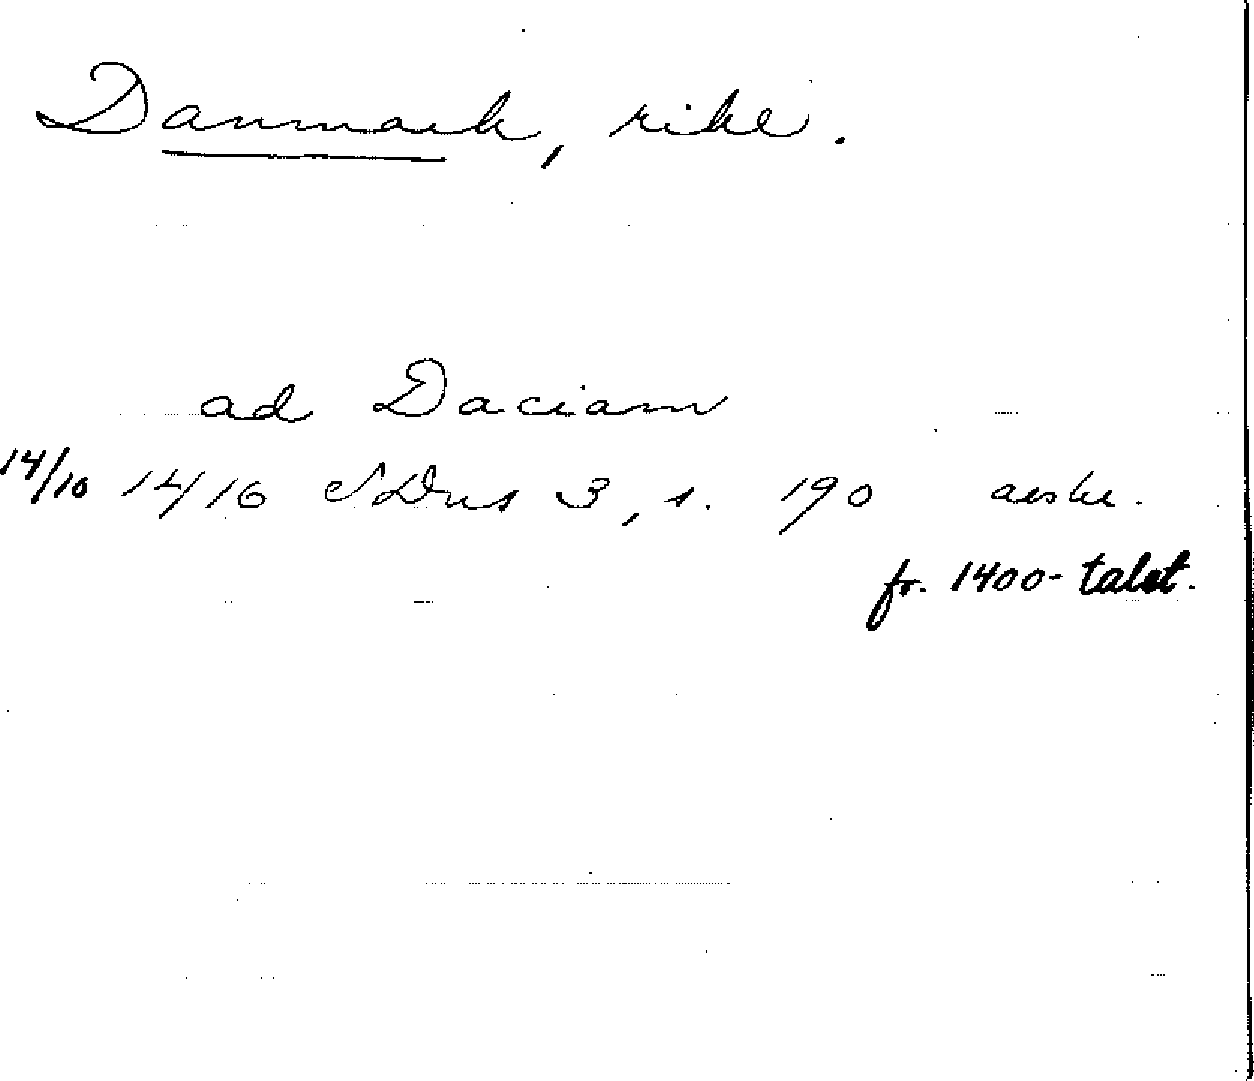 Danmark, rike.
ad Daciam
14/10 1416 SDns 3, s. 190 avskr.
fr. 1400-talet.